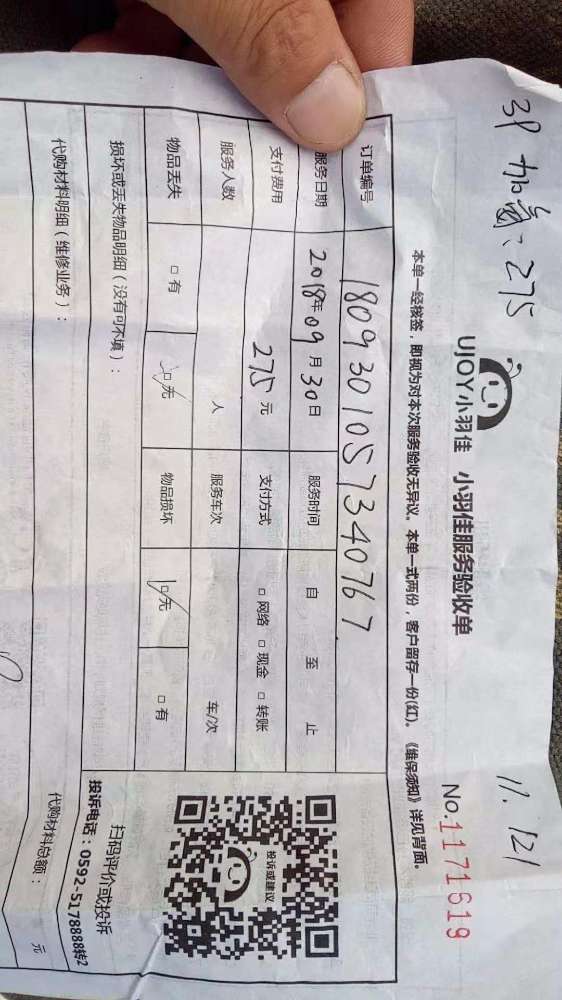 3P加氟:275
11.121
UJOY小羽佳 小羽佳服务验收单
No.1171619
本单一经核签,即视为对本次服务验收无异议。本单一式两份,客户留存一份(红)。《维保须知》详见背面。
订单编号 1809301057340767
服务日期 2018年09月30日 服务时间 自 至 止
支付费用 275元 支付方式 □网络 □现金 □转账
服务人数 人 服务车次 车/次
物品丢失 □有 □无 物品损坏 □无 □有
损坏或丢失物品明细(没有可不填):
投诉或建议
扫码评价或投诉
投诉电话:0592-5178888转2
代购材料明细(维修业务): 代购材料总额: 元